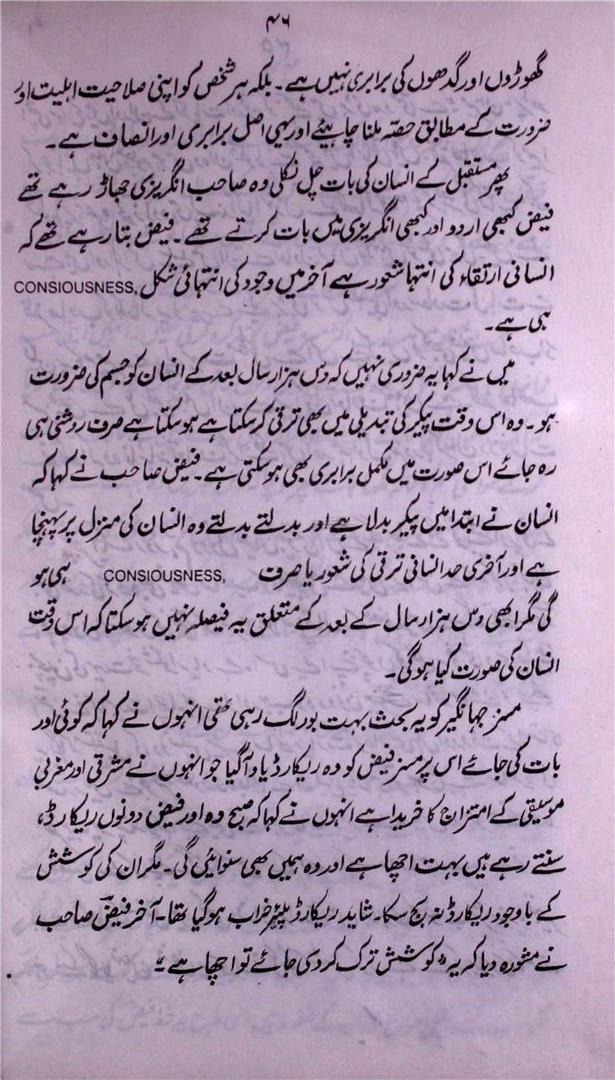 ۴۶
گھوڑوں اور گدھوں کی برابری نہیں ہے۔ بلکہ ہر شخص کو اپنی صلاحیت اہلیت اور
ضرورت کے مطابق حصّہ ملنا چاہیئے اور یہی اصل برابری اور انصاف ہے۔
پھر مستقبل کے انسان کی بات چل نکلی وہ صاحب انگریزی جھاڑ رہے تھے
فیض کبھی اردو اور کبھی انگریزی میں بات کرتے تھے۔ فیض بتا رہے تھے کہ
انسانی ارتقاء کی انتہا شعور ہے آخر میں وجود کی انتہائی شکل CONSIOUSNESS,
ہی ہے۔
میں نے کہا یہ ضروری نہیں کہ دس ہزار سال بعد کے انسان کو جسم کی ضرورت
ہو۔ وہ اس وقت پیکر کی تبدیلی میں بھی ترقی کر سکتا ہے ہو سکتا ہے صرف روشنی ہی
رہ جائے اس صورت میں مکمل برابری بھی ہو سکتی ہے۔ فیض صاحب نے کہا کہ
انسان نے ابتدا میں پیکر بدلا ہے اور بدلتے بدلتے وہ انسان کی منزل پر پہنچا
ہے اور آخری حد انسانی ترقی کی شعور یا صرف CONSIOUSNESS, ہی ہو
گی مگر ابھی دس ہزار سال کے بعد کے متعلق یہ فیصلہ نہیں ہو سکتا کہ اس وقت
انسان کی صورت کیا ہو گی۔
مسز جہانگیر کو یہ بحث بہت بور لگ رہی تھی انہوں نے کہا کہ کوئی اور
بات کی جائے اس پر مسز فیض کو وہ ریکارڈ یاد آگیا جو انہوں نے مشرقی اور مغربی
موسیقی کے امتزاج کا خریدا ہے انہوں نے کہا کہ صبح وہ اور فیض دونوں ریکارڈ،
سنتے رہے ہیں بہت اچھا ہے اور وہ ہمیں بھی سنوائیں گی۔ مگر ان کی کوشش
کے باوجود ریکارڈ نہ بج سکا۔ شاید ریکارڈ پلیئر خراب ہو گیا تھا۔ آخر فیض صاحب
نے مشورہ دیا کہ یہ "کوشش ترک کر دی جائے تو اچھا ہے"